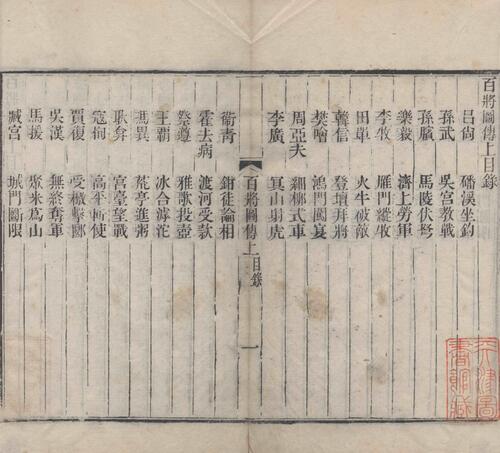 百將圖傳上目錄
呂尙 磻溪坐釣
孫武 吳宮教戰
孫臏 馬陵伏弩
樂毅 濟上勞軍
李牧 雁門縱牧
田單 火牛破敵
韓信 登壇拜將
樊噲 鴻門闖宴
周亞夫 細柳式車
李廣 冥山射虎
百將圖傳上 目錄 一
衞靑 鉗徒論相
霍去病 渡河受款
祭遵 雅歌投壺
王霸 冰合滹沱
馮異 荒亭進粥
耿弇 宮臺望戰
寇恂 高平斬使
賈復 受檄擊郾
吳漢 無終奪軍
馬援 聚米爲山
臧宮 城門斷限
天津圖書館藏